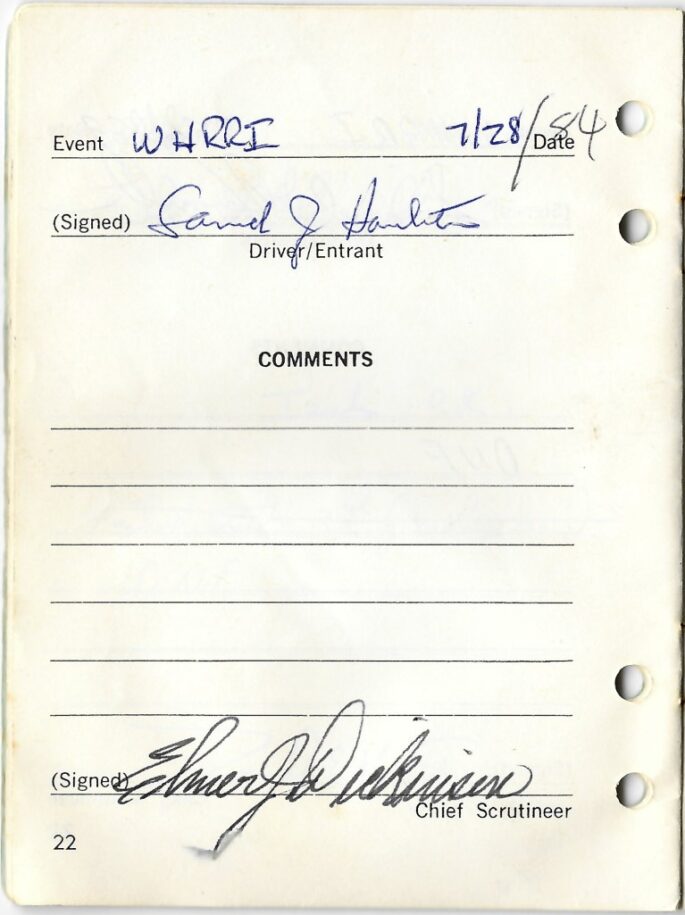 Event WHRRI 7/28/84 Date
(Signed) Samuel J Hamilton
Driver/Entrant
COMMENTS
(Signed) Elmer J Dickinson
Chief Scrutineer
22